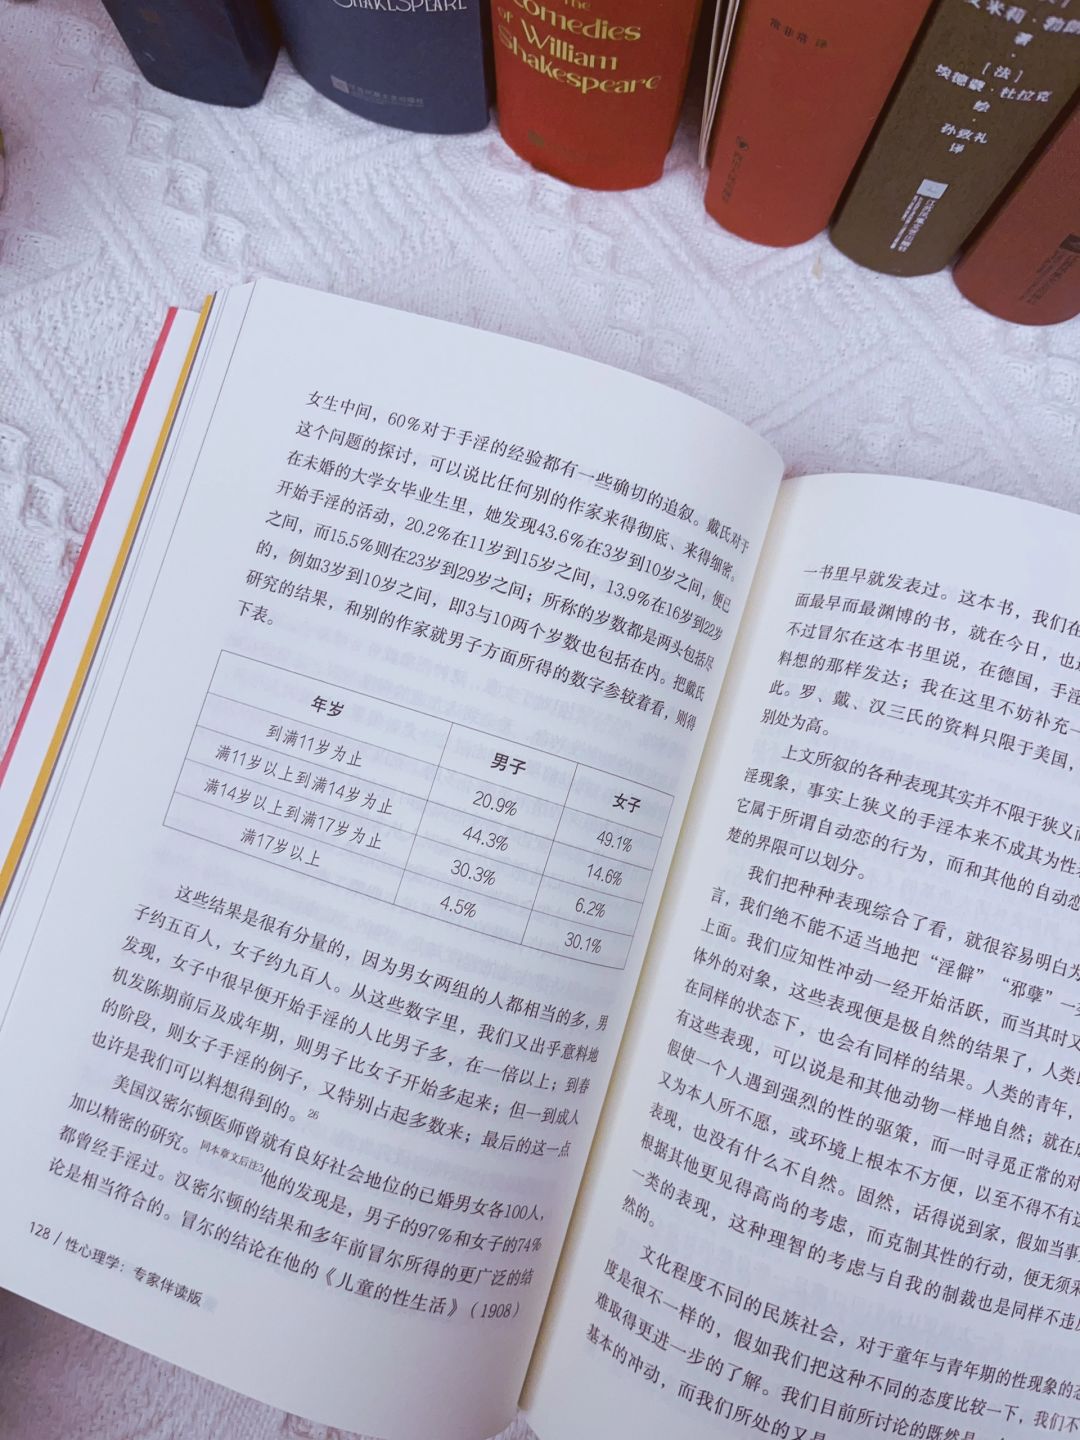 SHAKESPEARE
The
Comedies
of William
Shakespeare
常非常 译
著
[法]
埃德蒙·杜拉克
绘
孙致礼
译
女生中间，60%对于手淫的经验都有一些确切的追叙。戴氏对于
这个问题的探讨，可以说比任何别的作家来得彻底、来得细密。
在未婚的大学女毕业生里，她发现43.6%在3岁到10岁之间，便已
开始手淫的活动，20.2%在11岁到15岁之间，13.9%在16岁到22岁
之间，而15.5%则在23岁到29岁之间；所称的岁数都是两头包括尽
的，例如3岁到10岁之间，即3与10两个岁数也包括在内。把戴氏
研究的结果，和别的作家就男子方面所得的数字参较着看，则得
下表。
年岁 男子 女子
到满11岁为止 20.9% 49.1%
满11岁以上到满14岁为止 44.3% 14.6%
满14岁以上到满17岁为止 30.3% 6.2%
满17岁以上 4.5% 30.1%
这些结果是很有分量的，因为男女两组的人都相当的多，男
子约五百人，女子约九百人。从这些数字里，我们又出乎意料地
发现，女子中很早便开始手淫的人比男子多，在一倍以上；到春
机发陈期前后及成年期，则男子比女子开始多起来；但一到成人
的阶段，则女子手淫的例子，又特别占起多数来；最后的这一点
也许是我们可以料想得到的。26
美国汉密尔顿医师曾就有良好社会地位的已婚男女各100人，
加以精密的研究。同本章文后注3他的发现是，男子的97%和女子的74%
都曾经手淫过。汉密尔顿的结果和多年前冒尔所得的更广泛的结
论是相当符合的。冒尔的结论在他的《儿童的性生活》（1908）
128 / 性心理学：专家伴读版
一书里早就发表过。这本书，我们在
面最早而最渊博的书，就在今日，也
不过冒尔在这本书里说，在德国，手淫
料想的那样发达；我在这里不妨补充一
此。罗、戴、汉三氏的资料只限于美国，
别处为高。
上文所叙的各种表现其实并不限于狭义
淫现象，事实上狭义的手淫本来不成其为性
它属于所谓自动恋的行为，而和其他的自动恋
楚的界限可以划分。
我们把种种表现综合了看，就很容易明白
言，我们绝不能不适当地把“淫僻”“邪孽”一
上面。我们应知性冲动一经开始活跃，而当其时又
体外的对象，这些表现便是极自然的结果了，人类
在同样的状态下，也会有同样的结果。人类的青年，
有这些表现，可以说是和其他动物一样地自然；就在
假使一个人遇到强烈的性的驱策，而一时寻觅正常的对
又为本人所不愿，或环境上根本不方便，以至不得不有这
表现，也没有什么不自然。固然，话得说到家，假如当事
根据其他更见得高尚的考虑，而克制其性的行动，便无须来
一类的表现，这种理智的考虑与自我的制裁也是同样不违
然的。
文化程度不同的民族社会，对于童年与青年期的性现象的态
度是很不一样的，假如我们把这种不同的态度比较一下，我们不
难取得更进一步的了解。我们目前所讨论的既然是
基本的冲动，而我们所处的又是